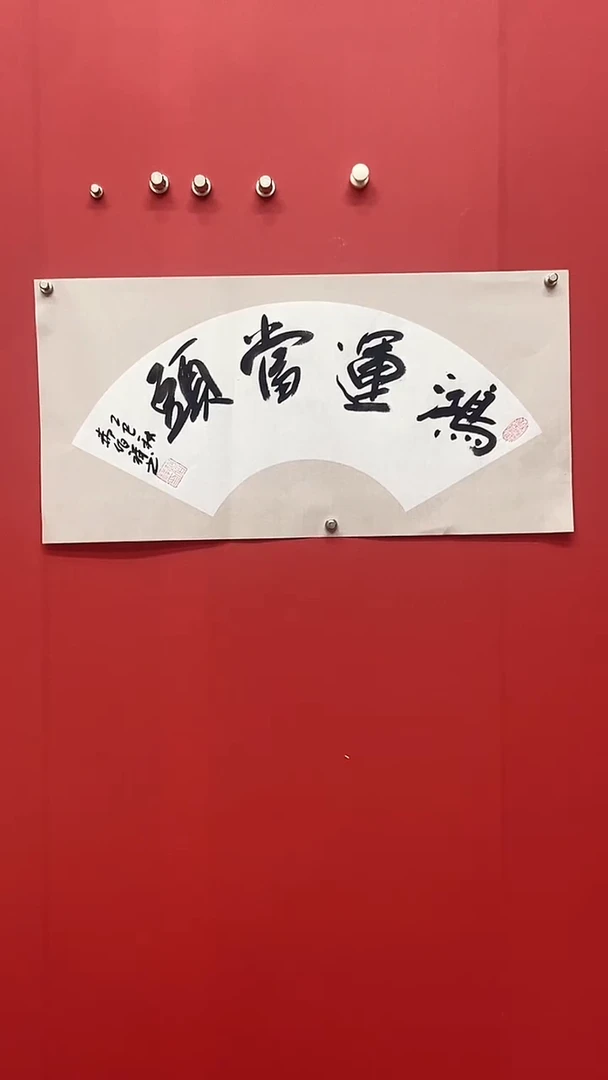 鴻運當頭
乙巳秋